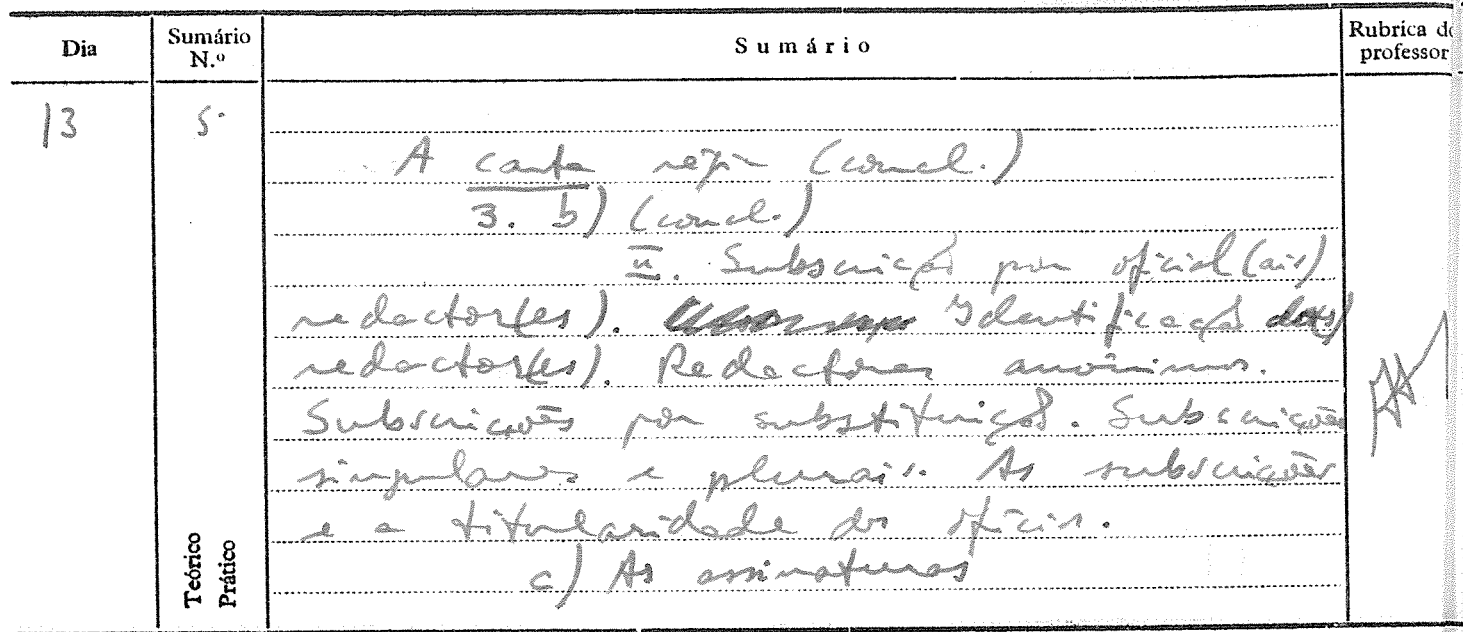 Dia
Sumário N.º
Sumário
Rubrica do professor
13
5.
A carta régia (concl.)
3. b) (concl.)
II. Subscrição por oficial(ais)
redactor(es). Identificação do(s)
redactor(es). Redactores anónimos.
Subscrições por substituição. Subscrições
singulares e plurais. As subscrições
e a titularidade dos ofícios.
c) As assinaturas
Teórico
Prático